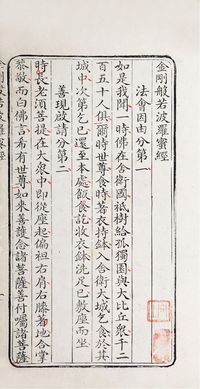 金剛般若波羅蜜經
法會因由分第一
如是我聞一時佛在舍衛國祇樹給孤獨園與大比丘衆千二
百五十人俱爾時世尊食時著衣持鉢入舍衛大城乞食於其
城中次第乞已還至本處飯食訖收衣鉢洗足已敷座而坐
善現啟請分第二
時長老須菩提在大衆中即從座起偏袒右肩右膝著地合掌
恭敬而白佛言希有世尊如來善護念諸菩薩善付囑諸菩薩
金剛般若波羅蜜經